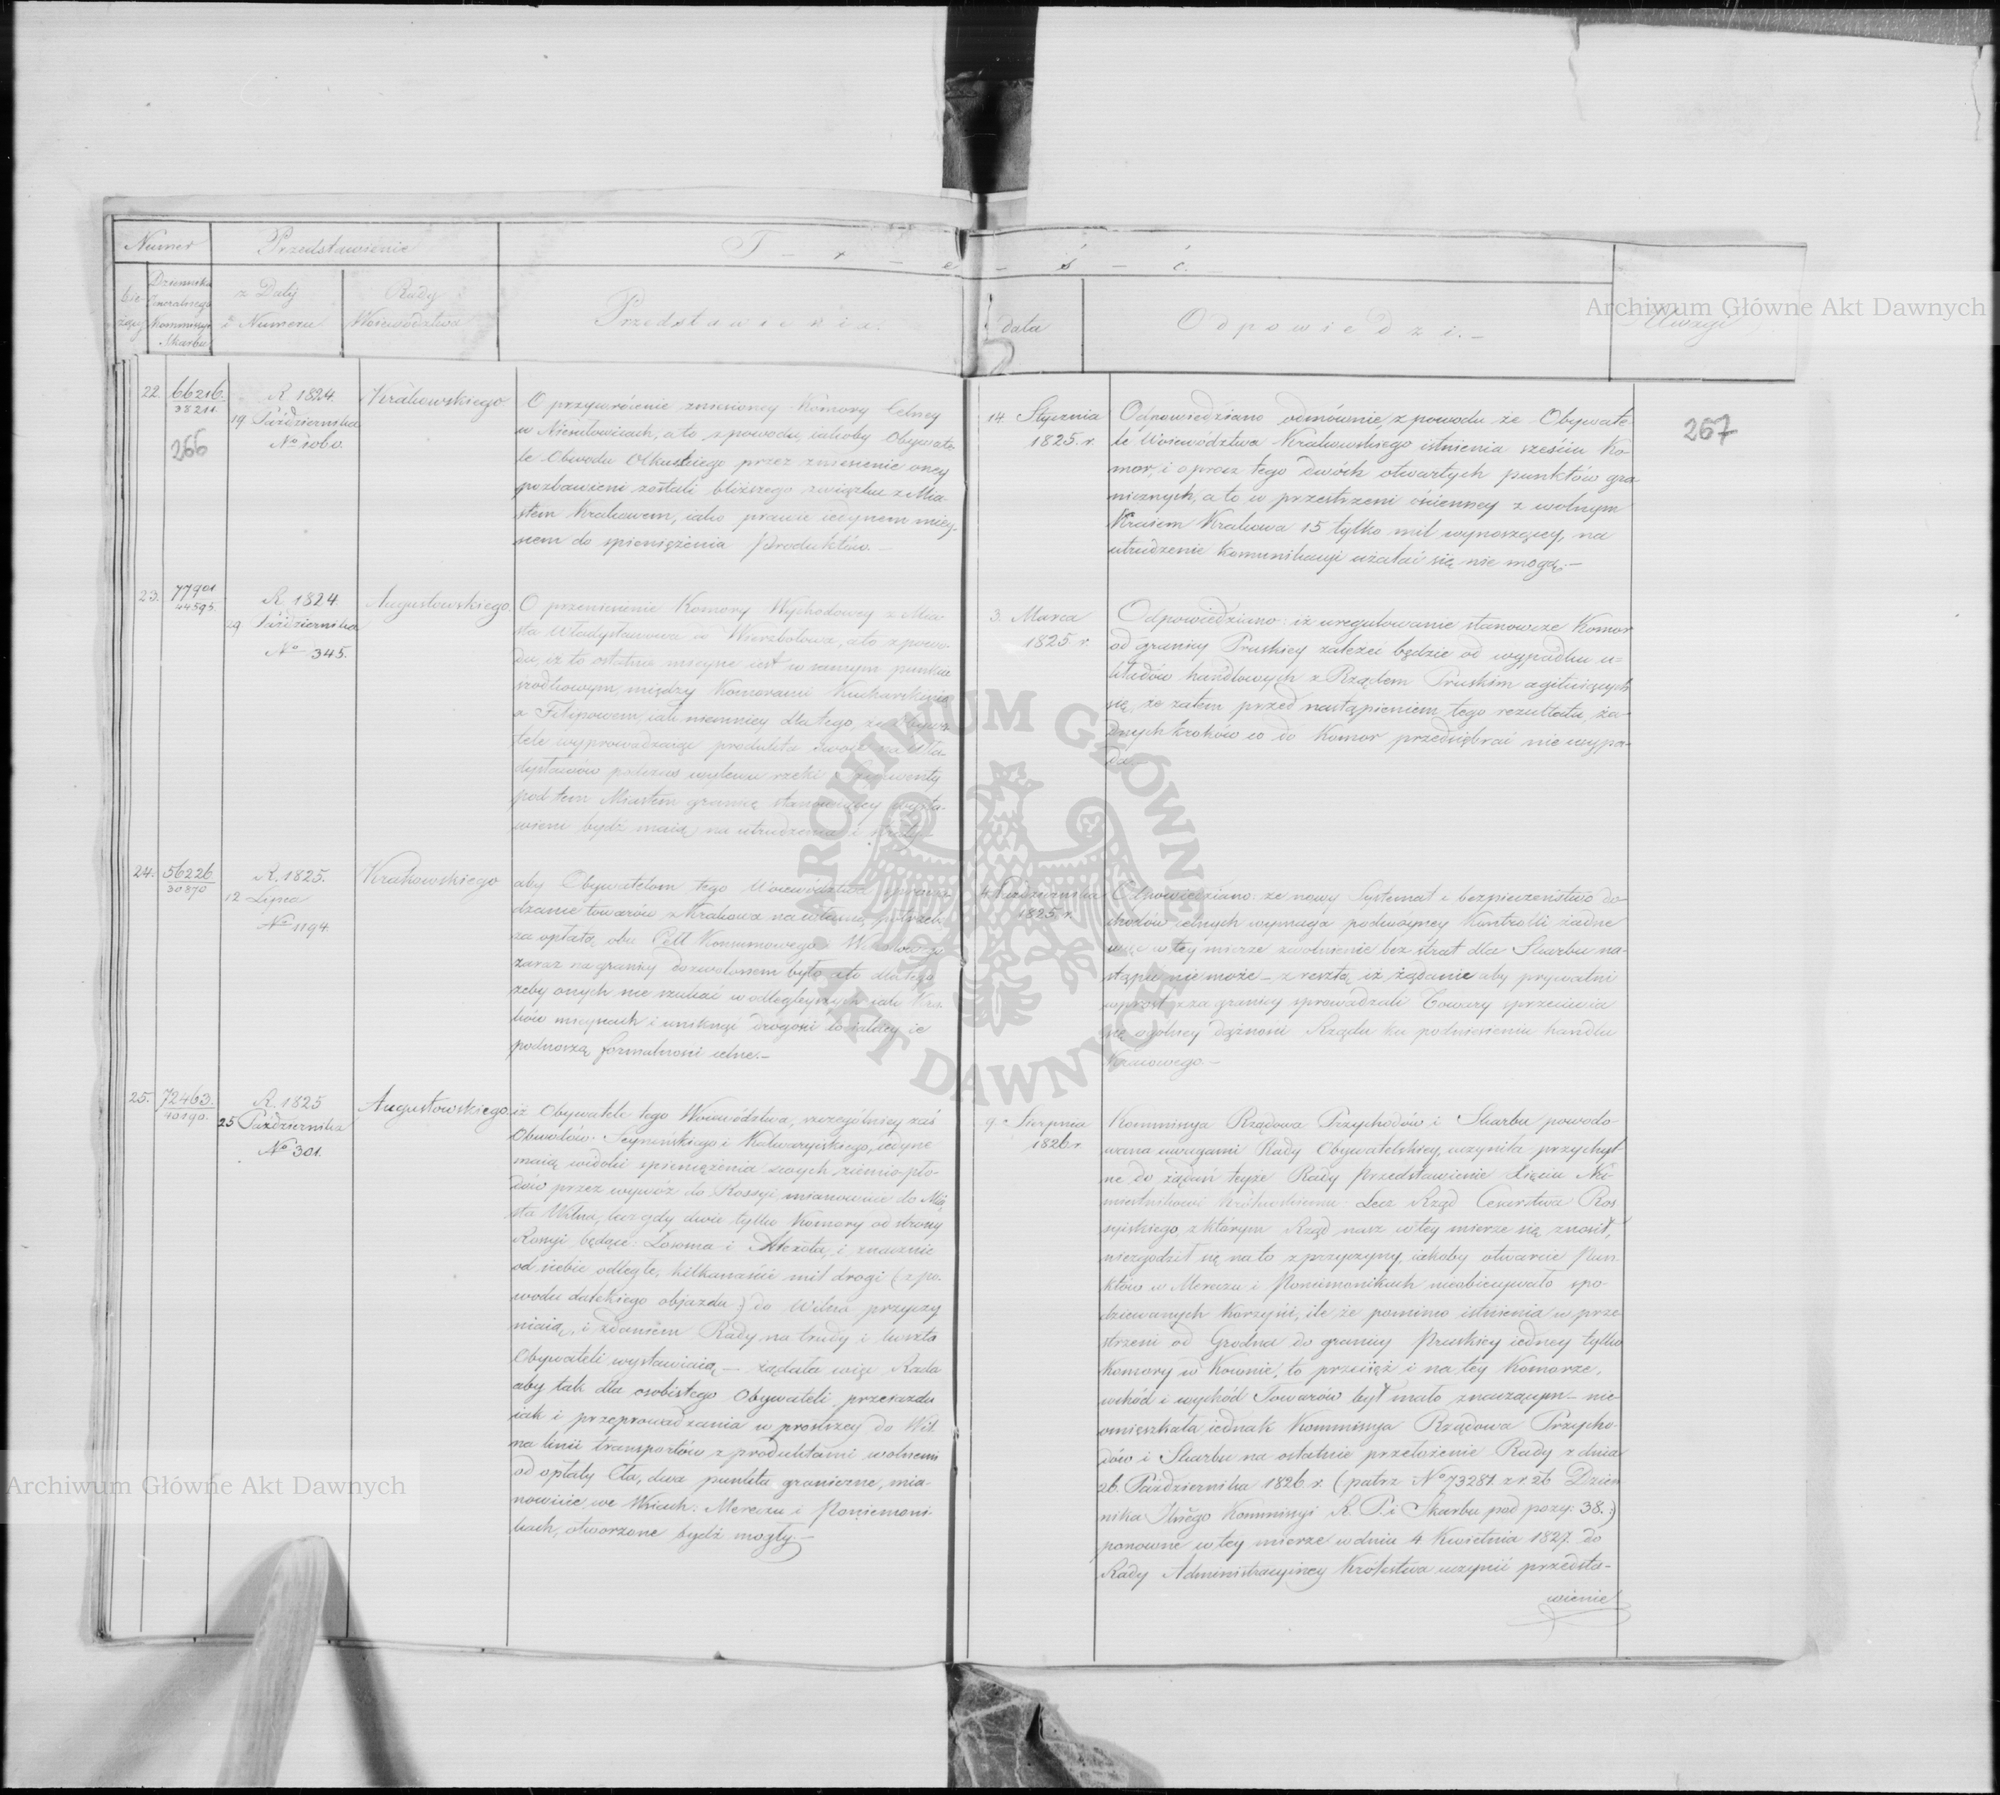 Numer
Przedstawienie
T - r - e - ś - ć.
bie-
żący
Dziennika
Generalnego
Kommissyi
Skarbu
z Daty
i Numeru
Rady
Woiewództwa
Przedstawienia.
data
Odpowiedzi.-
Uwagi
22.
66216.
38211.
266
R. 1824.
19 Października
No 1060.
Krakowskiego
O przywrócenie zniesioney Komory Celney
w Nieszułowicach, a to z powodu, iakoby Obywate-
le Obwodu Olkuskiego przez zniesienie oney
pozbawieni zostali bliższego związku z Mia-
stem Krakowem, iako prawie iedynem miey-
scem do spieniężenia Produktów.-
14 Stycznia
1825. r.
Odpowiedziano odmównie, z powodu że Obywate-
le Woiewództwa Krakowskiego istnienia sześciu Ko-
mor, i oprócz tego dwóch otwartych punktów gra-
nicznych, a to w przestrzeni ościenney z wolnym
Kraiem Krakowa 15 tylko mil wynoszącey, na
utrudzenie komunikacyi użalać się nie mogą.-
267
23.
77901
44595.
R. 1824.
29 Października
No 345.
Augustowskiego.
O przeniesienie Komory Wychodowey z Mia-
sta Władysławowa do Wierzbołowa, a to z powo-
du, iż to ostatnie mieysce iest w samym punkcie
środkowym, między Komorami Kucharskiemi
a Filipowem, iak niemniey dla tego, że Obywa-
tele wyprowadzaiąc produkta swoie na Wła-
dysławów podczas wylewu rzeki Szeszuppy
pod tem Miastem granicę stanowiącey wysta-
wieni bydź maią na utrudzenia i straty.
3. Marca
1825 r.
Odpowiedziano: iż uregulowanie stanowcze Komor
od granicy Pruskiey zależeć będzie od wypadku u-
kładów handlowych z Rządem Pruskim agituiących
się, że zatem przed nastąpieniem tego rezultatu, ża-
dnych kroków co do Komor przedsiębrać nie wypa-
da.
24.
56226
30870
R. 1825.
12 Lipca
No 1194.
Krakowskiego
aby Obywatelom tego Woiewództwa sprowa-
dzanie towarów z Krakowa na własną potrzebę
za opłatą obu Cełł Konsumowego i Wchodowego
zaraz na granicy dozwolonem było, a to dla tego
żeby onych nie szukać w odległeyszych iak Kra-
ków mieyscach i uniknąć drogości do iakiey ie
podnoszą formalności celne.-
4. Października
1825. r.
Odpowiedziano: że nowy Systemat i bezpieczeństwo do-
chodów celnych wymaga podwóyney Kontrolli żadne
więc w tey mierze zwolnienie bez strat dla Skarbu na-
stąpić nie może - z resztą, iż żądanie aby prywatni
wprost z zagranicy sprowadzali Towary sprzeciwia
się ogólney dążności Rządu ku podniesieniu handlu
Kraiowego.-
25.
72463.
40190.
R. 1825
25 Października
No 301.
Augustowskiego.
iż Obywatele tego Woiewództwa, szczególniey zaś
Obwodów: Seyneńskiego i Kalwaryiskiego, iedyne
maią widoki spieniężenia swych ziemio-pło-
dów przez wywóz do Rossyi, mianowicie do Mia-
sta Wilna, lecz gdy dwie tylko Komory od strony
Rossyi będące: Łosośna i Alexota, i znacznie
od siebie odległe, kilkanaście mil drogi (z po-
wodu dalekiego objazdu) do Wilna przyczy-
niaią, i zdaniem Rady na trudy i koszta
Obywateli wystawiaią - żądała więc Rada
aby tak dla osobistego Obywateli przejazdu
iak i przeprowadzania w prostszey do Wil-
na linii transportów z produktami wolnemi
od opłaty Cła, dwa punkta graniczne, mia-
nowicie we Wsiach: Mereczu i Poniemoni-
kach, otworzone bydź mogły.-
9. Sierpnia
1826 r.
Kommissya Rządowa Przychodów i Skarbu powodo-
wana uwagami Rady Obywatelskiey, uczyniła przychyl-
ne do żądań teyże Rady Przedstawienie Xięciu Na-
miestnikowi Królewskiemu. Lecz Rząd Cesarstwa Ros-
syiskiego, z którym Rząd nasz w tey mierze się znosił,
niezgodził się na to z przyczyny, iakoby otwarcie Pun-
któw w Mereczu i Poniemonikach nieobiecywało spo-
dziewanych korzyści, ile że pomimo istnienia w prze-
strzeni od Grodna do granicy Pruskiey iedney tylko
Komory w Kownie, to przecięż i na tey Komorze,
wchód i wychód Towarów był mało znaczącym - nie
omieszkała iednak Kommissya Rządowa Przycho-
dów i Skarbu na ostatnie przełożenie Rady z dnia
26. Października 1826. r. (patrz No 73281 z r. 26 Dzien-
nika Głnego Kommissyi R. P. i Skarbu pod pozy: 38.)
ponowne w tey mierze w dniu 4 Kwietnia 1827. do
Rady Administracyiney Królestwa uczynić przedsta-
wienie
Archiwum Główne Akt Dawnych
Archiwum Główne Akt Dawnych
ARCHIWUM GŁÓWNE AKT DAWNYCH